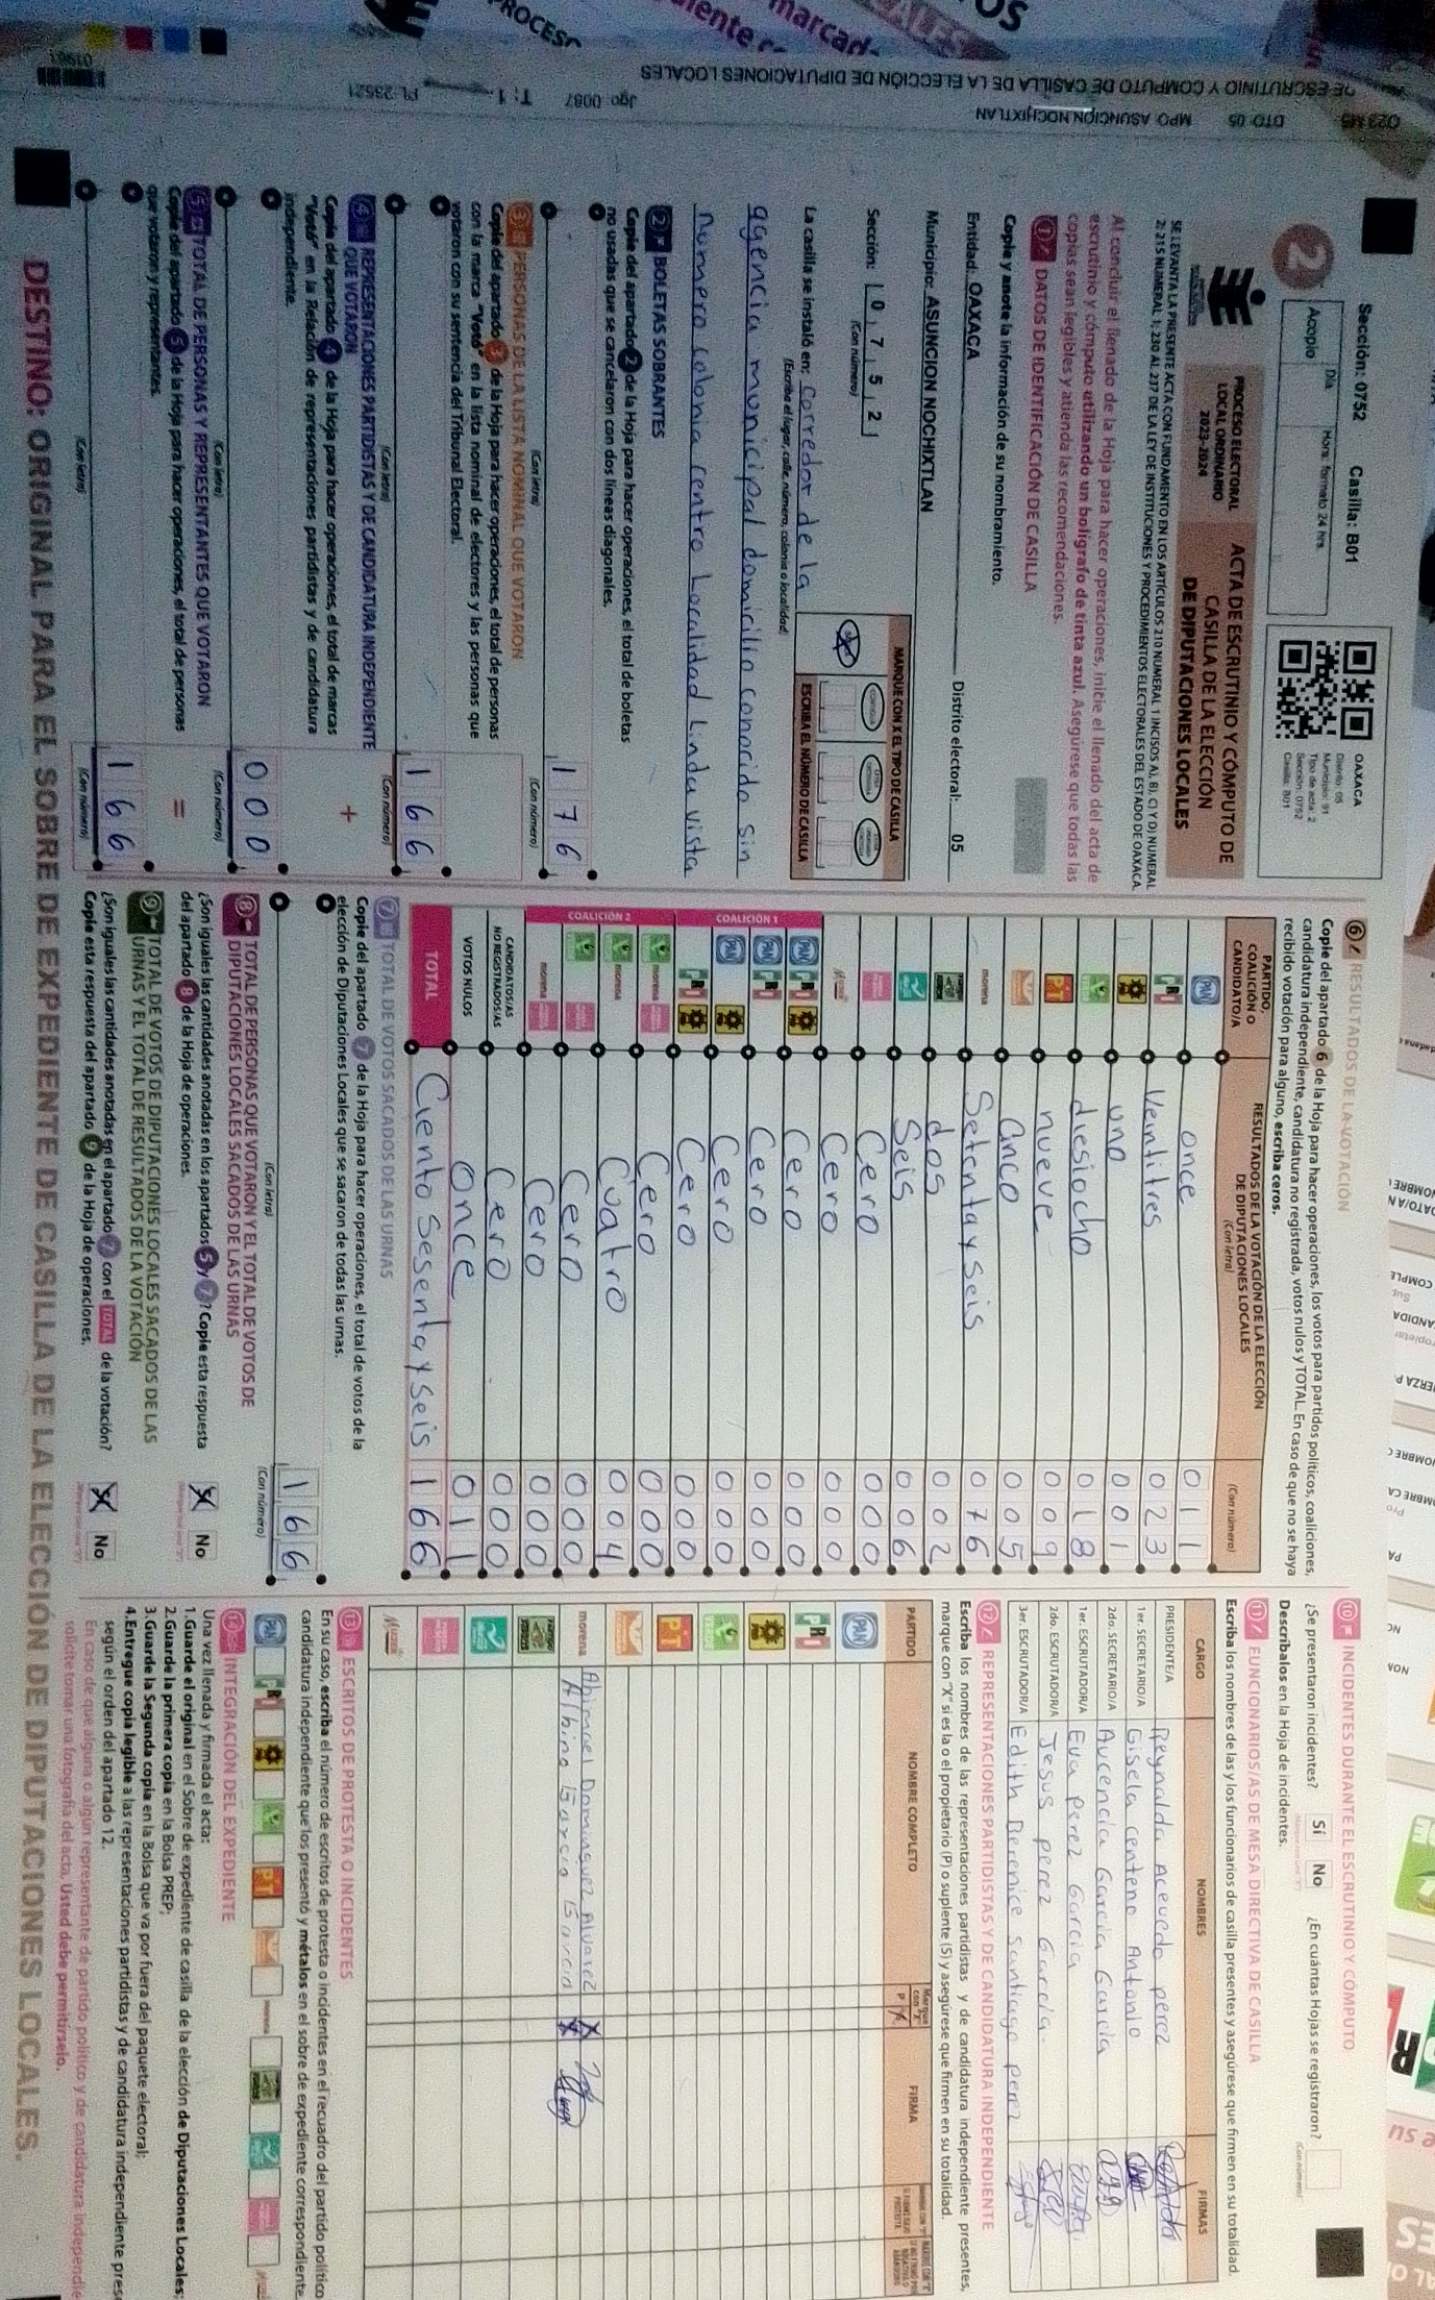 Sección: 0752 Casilla: B01
OAXACA
Distrito: 05
Municipio: 91
Tipo de acta: 2
Sección: 0752
Casilla: B01
2
Acopio
Día
Hora: formato 24 hrs
PROCESO ELECTORAL
LOCAL ORDINARIO
2023-2024
ACTA DE ESCRUTINIO Y CÓMPUTO DE
CASILLA DE LA ELECCIÓN
DE DIPUTACIONES LOCALES
SE LEVANTA LA PRESENTE ACTA CON FUNDAMENTO EN LOS ARTÍCULOS 210 NUMERAL 1 INCISOS A), B), C) Y D) NUMERAL
2; 215 NUMERAL 1; 230 AL 237 DE LA LEY DE INSTITUCIONES Y PROCEDIMIENTOS ELECTORALES DEL ESTADO DE OAXACA.
Al concluir el llenado de la Hoja para hacer operaciones, inicie el llenado del acta de
escrutinio y cómputo utilizando un bolígrafo de tinta azul. Asegúrese que todas las
copias sean legibles y atienda las recomendaciones.
1 DATOS DE IDENTIFICACIÓN DE CASILLA
Copie y anote la información de su nombramiento.
Entidad: OAXACA Distrito electoral: 05
Municipio: ASUNCION NOCHIXTLAN
Sección: 0 7 5 2
(Con número)
MARQUE CON X EL TIPO DE CASILLA
ESCRIBA EL NÚMERO DE CASILLA
La casilla se instaló en: Corredor de la
(Escriba el lugar, calle, número, colonia o localidad)
agencia municipal domicilio conocido sin
numero colonia centro Localidad Linda vista
2 BOLETAS SOBRANTES
Copie del apartado 2 de la Hoja para hacer operaciones, el total de boletas
no usadas que se cancelaron con dos líneas diagonales.
176
(Con letra) (Con número)
3 PERSONAS DE LA LISTA NOMINAL QUE VOTARON
Copie del apartado 3 de la Hoja para hacer operaciones, el total de personas
con la marca "Votó" en la lista nominal de electores y las personas que
votaron con su sentencia del Tribunal Electoral.
166
(Con letra) (Con número)
4 REPRESENTACIONES PARTIDISTAS Y DE CANDIDATURA INDEPENDIENTE
QUE VOTARON
+
Copie del apartado 4 de la Hoja para hacer operaciones, el total de marcas
"Votó" en la Relación de representaciones partidistas y de candidatura
independiente.
000
(Con letra) (Con número)
5 TOTAL DE PERSONAS Y REPRESENTANTES QUE VOTARON
=
Copie del apartado 5 de la Hoja para hacer operaciones, el total de personas
que votaron y representantes.
166
(Con letra) (Con número)
6 RESULTADOS DE LA VOTACIÓN
Copie del apartado 6 de la Hoja para hacer operaciones, los votos para partidos políticos, coaliciones,
candidatura independiente, candidatura no registrada, votos nulos y TOTAL. En caso de que no se haya
recibido votación para alguno, escriba ceros.
PARTIDO,
COALICIÓN O
CANDIDATO/A
RESULTADOS DE LA VOTACIÓN DE LA ELECCIÓN
DE DIPUTACIONES LOCALES
(Con letra) (Con número)
PAN once 011
PRI Veintitres 023
PRD uno 001
VERDE diesiocho 018
PT nueve 009
Cinco 005
morena Setenta y seis 076
dos 002
Seis 006
Cero 000
Cero 000
COALICIÓN 1
PAN PRI PRD Cero 000
PAN PRI Cero 000
PAN PRD Cero 000
PRI PRD Cero 000
COALICIÓN 2
VERDE morena Cero 000
VERDE morena Cuatro 004
VERDE Cero 000
morena Cero 000
CANDIDATOS/AS
NO REGISTRADOS/AS Cero 000
VOTOS NULOS Once 011
TOTAL Ciento Sesenta y Seis 166
7 TOTAL DE VOTOS SACADOS DE LAS URNAS
Copie del apartado 7 de la Hoja para hacer operaciones, el total de votos de la
elección de Diputaciones Locales que se sacaron de todas las urnas.
166
(Con letra) (Con número)
8 TOTAL DE PERSONAS QUE VOTARON Y EL TOTAL DE VOTOS DE
DIPUTACIONES LOCALES SACADOS DE LAS URNAS
¿Son iguales las cantidades anotadas en los apartados 5 y 7? Copie esta respuesta
del apartado 8 de la Hoja de operaciones.
X No
9 TOTAL DE VOTOS DE DIPUTACIONES LOCALES SACADOS DE LAS
URNAS Y EL TOTAL DE RESULTADOS DE LA VOTACIÓN
¿Son iguales las cantidades anotadas en el apartado 7 con el TOTAL de la votación?
Copie esta respuesta del apartado 9 de la Hoja de operaciones.
X No
10 INCIDENTES DURANTE EL ESCRUTINIO Y CÓMPUTO
¿Se presentaron incidentes? Sí No ¿En cuántas Hojas se registraron?
(Con número)
Descríbalos en la Hoja de incidentes.
11 FUNCIONARIOS/AS DE MESA DIRECTIVA DE CASILLA
Escriba los nombres de las y los funcionarios de casilla presentes y asegúrese que firmen en su totalidad.
CARGO NOMBRES FIRMAS
PRESIDENTE/A Reynalda Acevedo perez
1er SECRETARIO/A Gisela centeno Antonio
2do. SECRETARIO/A Aucencia Garcia Garcia
1er. ESCRUTADOR/A Eva perez Garcia
2do. ESCRUTADOR/A Jesus perez Garcia
3er. ESCRUTADOR/A Edith Berenice Santiago perez
12 REPRESENTACIONES PARTIDISTAS Y DE CANDIDATURA INDEPENDIENTE
Escriba los nombres de las representaciones partidistas y de candidatura independiente presentes,
marque con "X" si es la o el propietario (P) o suplente (S) y asegúrese que firmen en su totalidad.
PARTIDO NOMBRE COMPLETO FIRMA
PAN
PRI
PRD
VERDE
PT
morena Abimael Dominguez Alvarez X
Albino Garcia Garcia X
13 ESCRITOS DE PROTESTA O INCIDENTES
En su caso, escriba el número de escritos de protesta o incidentes en el recuadro del partido político
candidatura independiente que los presentó y métalos en el sobre de expediente correspondiente.
14 INTEGRACIÓN DEL EXPEDIENTE
Una vez llenada y firmada el acta:
1.Guarde el original en el Sobre de expediente de casilla de la elección de Diputaciones Locales;
2.Guarde la primera copia en la Bolsa PREP;
3.Guarde la Segunda copia en la Bolsa que va por fuera del paquete electoral;
4.Entregue copia legible a las representaciones partidistas y de candidatura independiente pres
según el orden del apartado 12.
En caso de que alguna o algún representante de partido político y de candidatura independie
solicite tomar una fotografía del acta, Usted debe permitírselo.
DESTINO: ORIGINAL PARA EL SOBRE DE EXPEDIENTE DE CASILLA DE LA ELECCIÓN DE DIPUTACIONES LOCALES.
DE ESCRUTINIO Y COMPUTO DE CASILLA DE LA ELECCIÓN DE DIPUTACIONES LOCALES
DTO 05 MPO ASUNCIÓN NOCHIXTLAN
Jgo 0087 T: 1 PL-23521